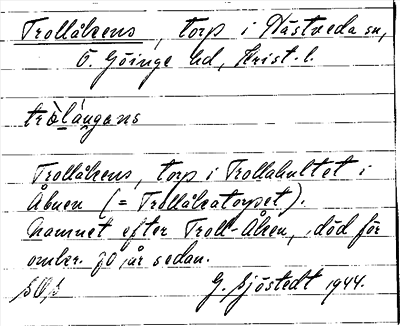 Trollåkens, torp i Nästveda sn,
Ö. Göinge hd, Krist. l.
Trollåkens, torp i Trollahultet i
Åbuen (= Trollåkatorpet).
Namnet efter Troll-Åken, död för
omkr. 70 år sedan.
G. Sjöstedt 1944.